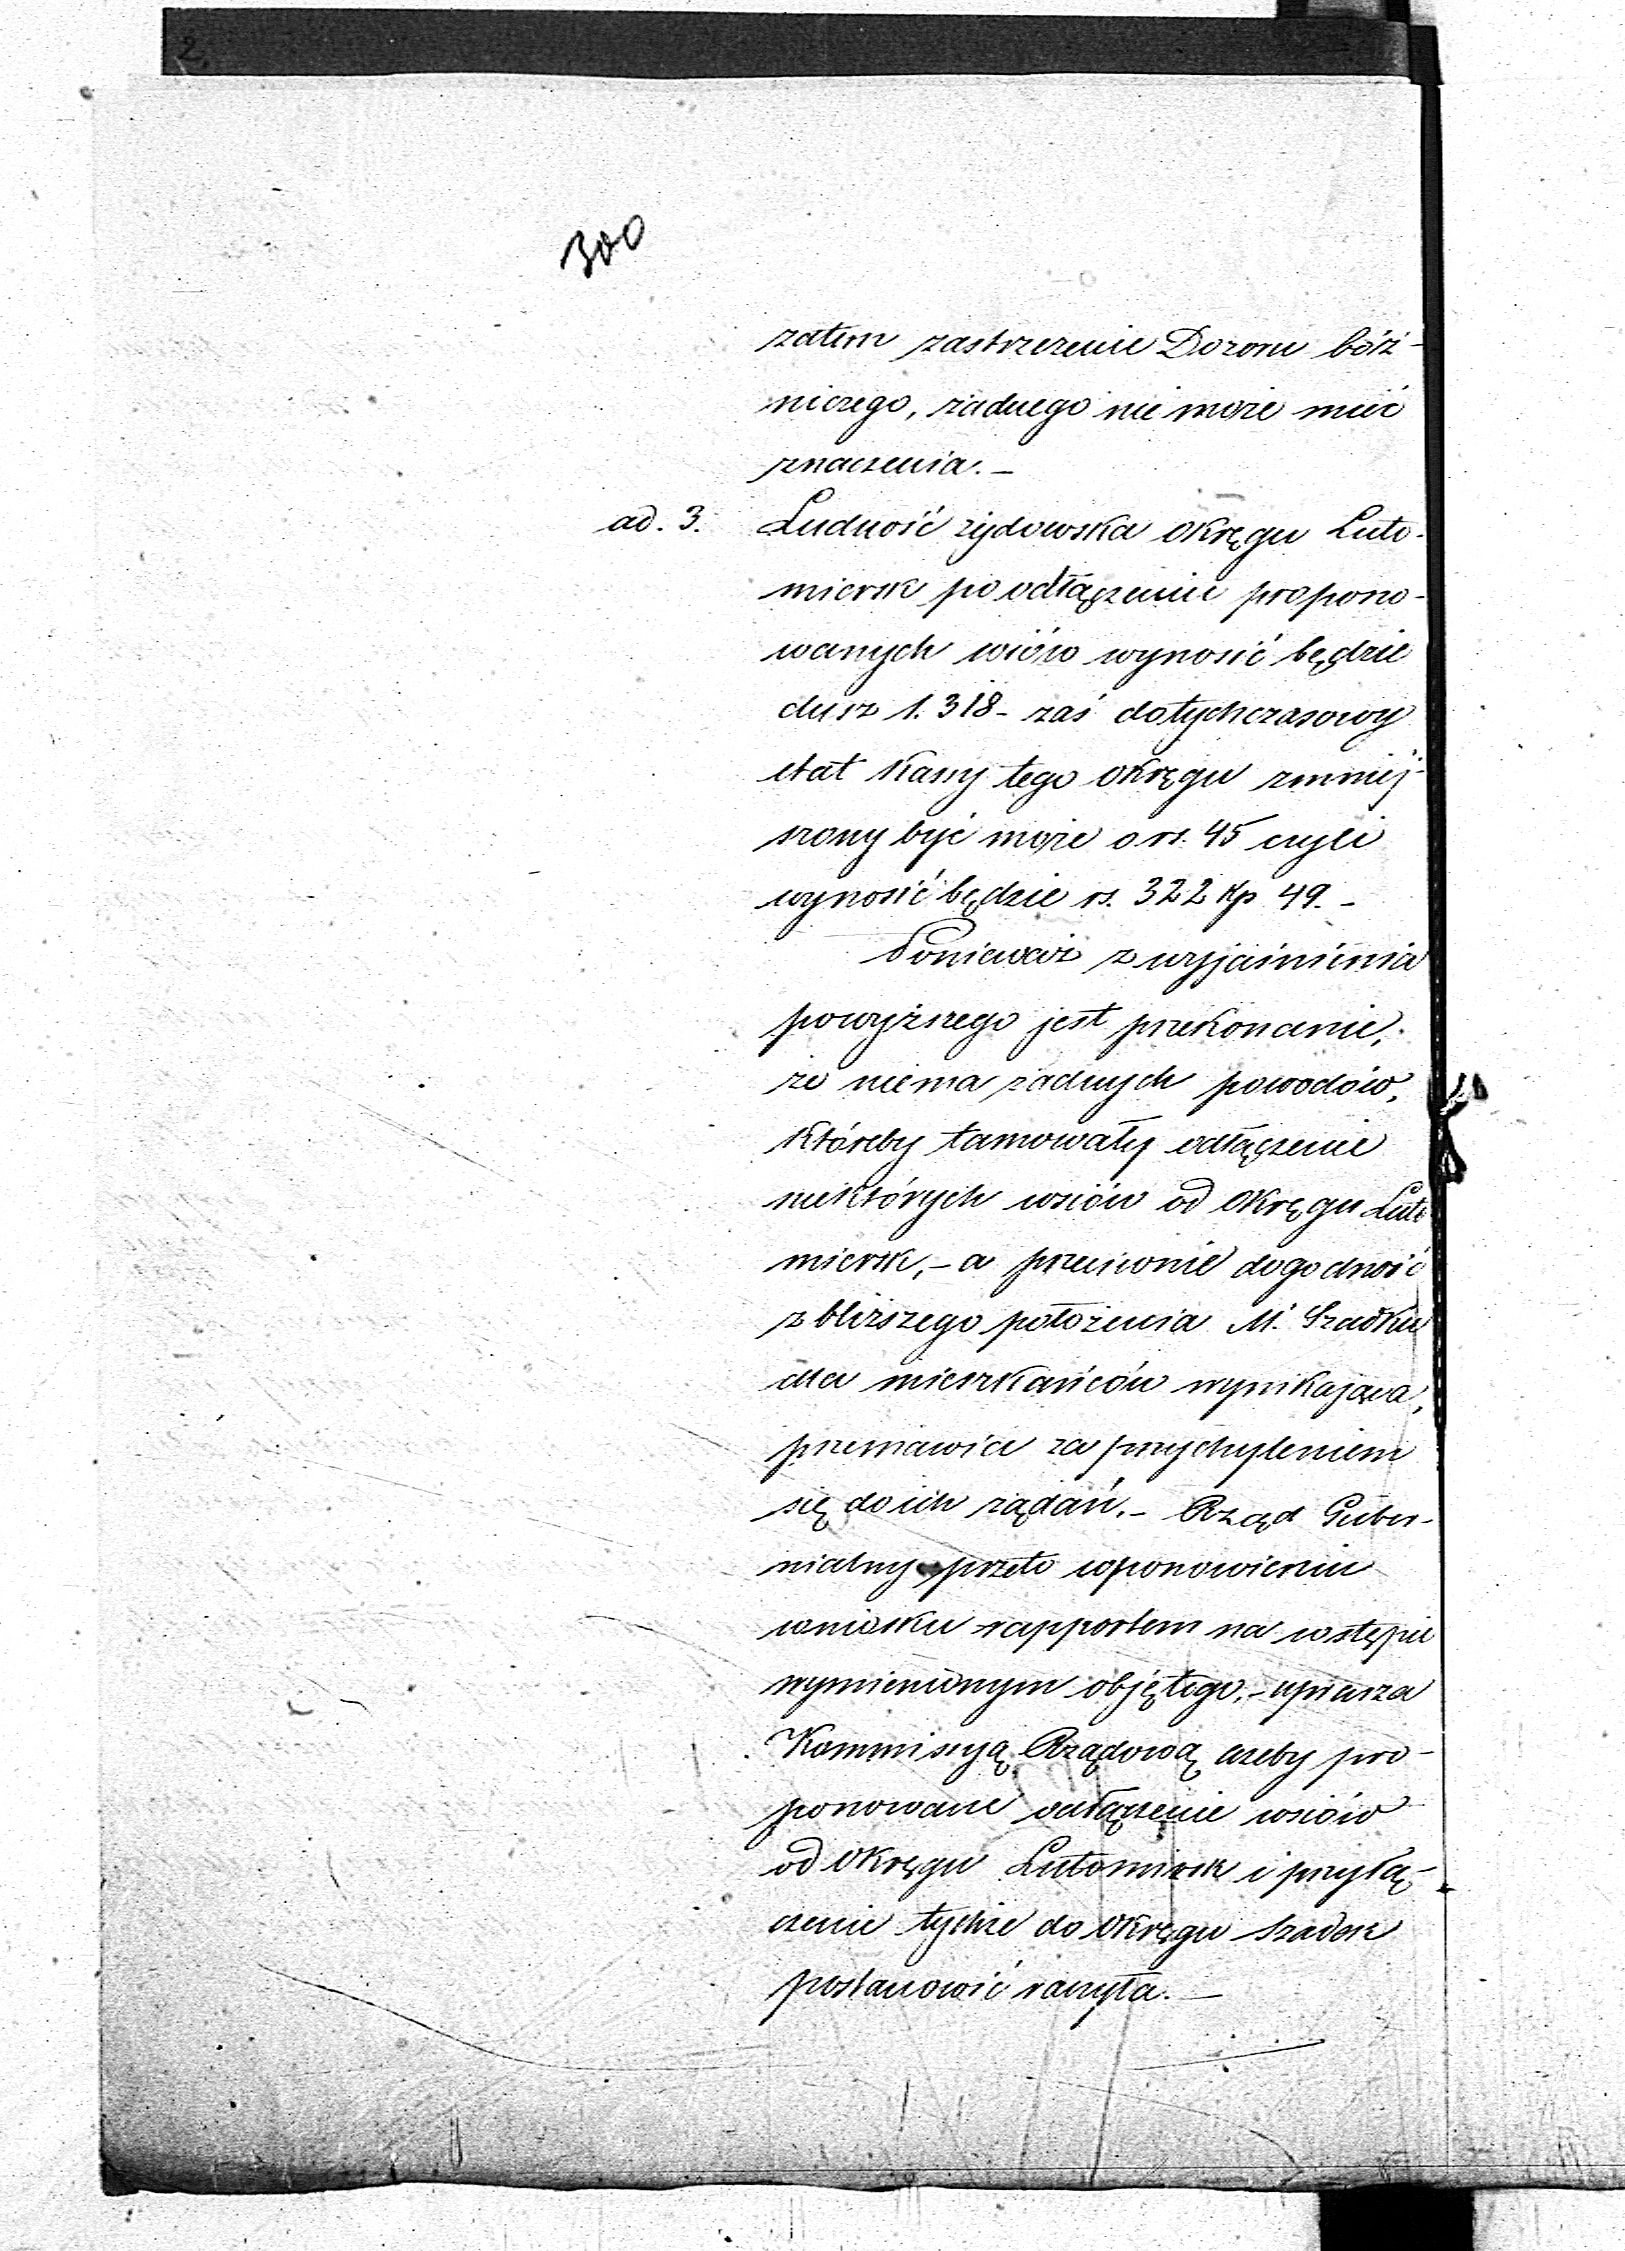 2
300
zatem zastrzeżenie Dozoru bóż-
niczego, żadnego nie może mieć
znaczenia.–
ad. 3. Ludność żydowska Okręgu Luto-
miersk po odłączeniu propono-
wanych wsiów wynosić będzie
dusz 1.318 – zaś dotychczasowy
etat Kassy tego Okręgu zmniej-
szony być może o rs. 45 czyli
wynosić będzie rs. 322 kp 49.–
Ponieważ z wyjaśnienia
powyższego jest przekonanie,
że niema żadnych powodów,
któreby tamowały odłączenie
niektórych wsiów od Okręgu Luto
miersk,– a przeciwnie dogodność
z bliższego położenia M. Szadku
dla mieszkańców wynikająca,
przemawia za przychyleniem
się do ich żądań.– Rząd Guber-
nialny przeto w ponowieniu
wniosku rapportem na wstępie
wymienionym objętego,– uprasza
Kommissyą Rządową ażeby pro-
ponowane odłączenie wsiów
od Okręgu Lutomiersk i przyłą-
czenie tychże do Okręgu Szadek
postanowić raczyła.–